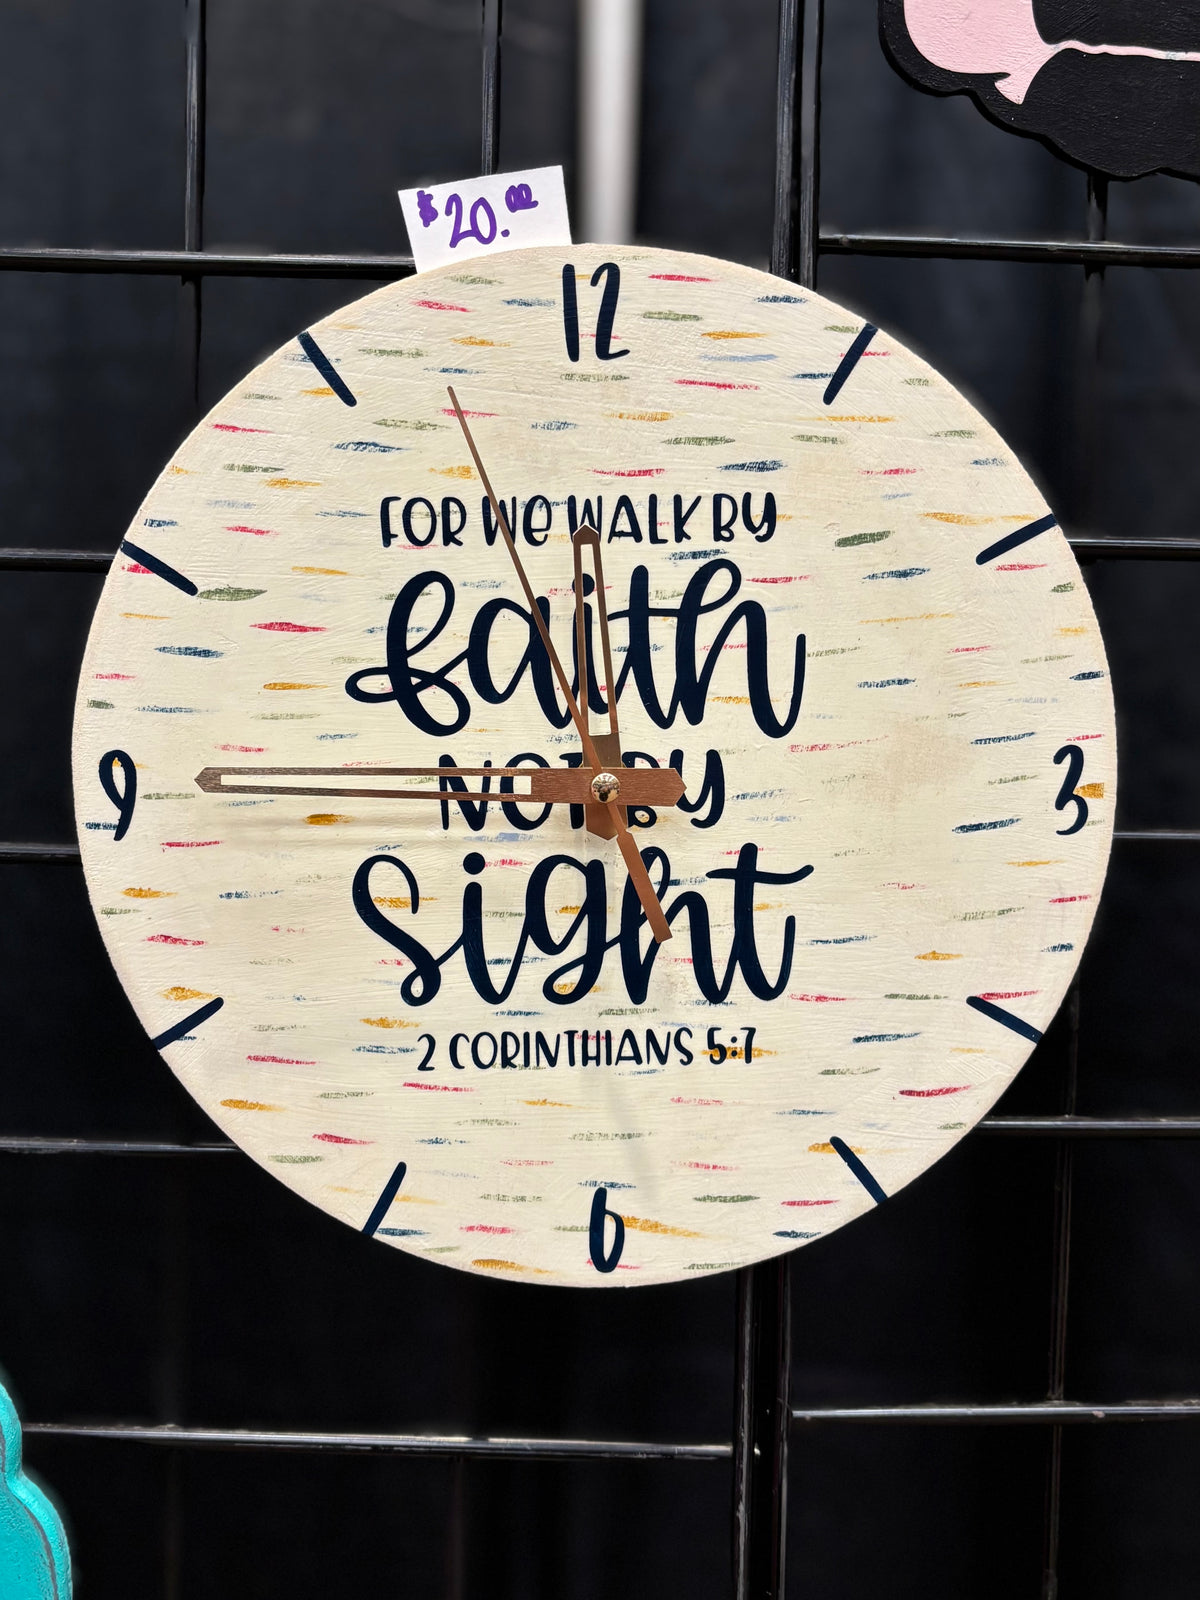 $20.00
12
FOR WE WALK BY
faith
9
NOT BY
3
sight
2 CORINTHIANS 5:7
6